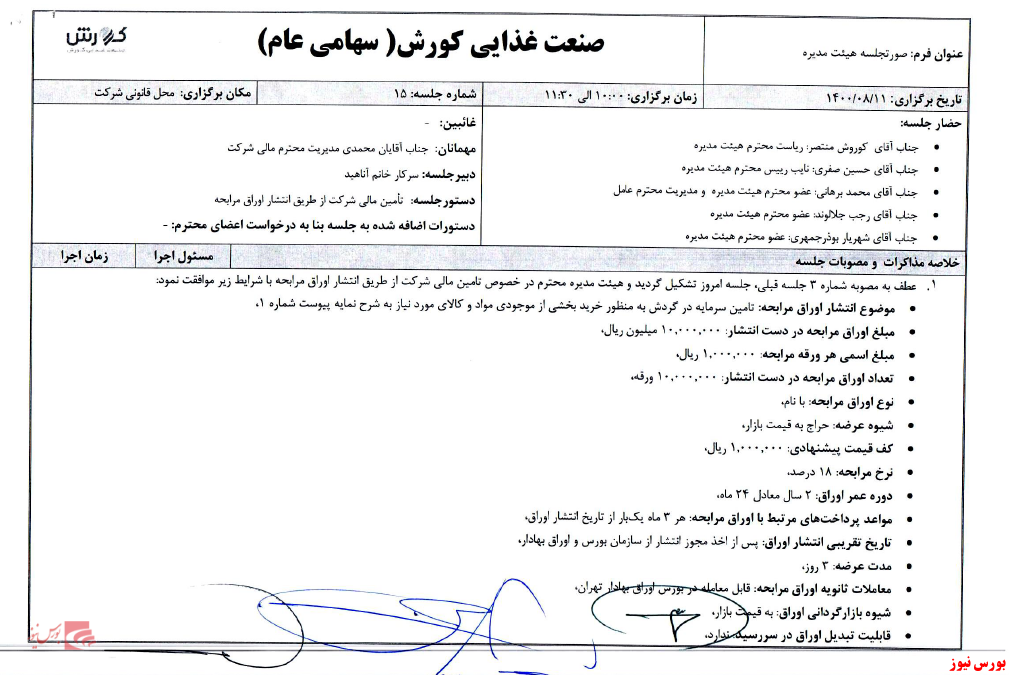 کورش
صنعت غذایی کورش( سهامی عام)
عنوان فرم: صورتجلسه هیئت مدیره
تاریخ برگزاری: ۱۴۰۰/۰۸/۱۱
زمان برگزاری: ۱۰:۰۰ الی ۱۱:۳۰
شماره جلسه: ۱۵
مکان برگزاری: محل قانونی شرکت
حضار جلسه:
• جناب آقای کوروش منتصر: ریاست محترم هیئت مدیره
• جناب آقای حسین صفری: نایب رییس محترم هیئت مدیره
• جناب آقای محمد برهانی: عضو محترم هیئت مدیره و مدیریت محترم عامل
• جناب آقای رجب جلالوند: عضو محترم هیئت مدیره
• جناب آقای شهریار بوذرجمهری: عضو محترم هیئت مدیره
غائبین: -
مهمانان: جناب آقایان محمدی مدیریت محترم مالی شرکت
دبیرجلسه: سرکار خانم آناهید
دستورجلسه: تأمین مالی شرکت از طریق انتشار اوراق مرابحه
دستورات اضافه شده به جلسه بنا به درخواست اعضای محترم: -
خلاصه مذاکرات و مصوبات جلسه
مسئول اجرا
زمان اجرا
۱. عطف به مصوبه شماره ۳ جلسه قبلی، جلسه امروز تشکیل گردید و هیئت مدیره محترم در خصوص تامین مالی شرکت از طریق انتشار اوراق مرابحه با شرایط زیر موافقت نمود:
• موضوع انتشار اوراق مرابحه: تامین سرمایه در گردش به منظور خرید بخشی از موجودی مواد و کالای مورد نیاز به شرح نمایه پیوست شماره ۱،
• مبلغ اوراق مرابحه در دست انتشار: ۱۰,۰۰۰,۰۰۰ میلیون ریال،
• مبلغ اسمی هر ورقه مرابحه: ۱,۰۰۰,۰۰۰ ریال،
• تعداد اوراق مرابحه در دست انتشار: ۱۰,۰۰۰,۰۰۰ ورقه،
• نوع اوراق مرابحه: با نام،
• شیوه عرضه: حراج به قیمت بازار،
• کف قیمت پیشنهادی: ۱,۰۰۰,۰۰۰ ریال،
• نرخ مرابحه: ۱۸ درصد،
• دوره عمر اوراق: ۲ سال معادل ۲۴ ماه،
• مواعد پرداخت‌های مرتبط با اوراق مرابحه: هر ۳ ماه یک‌بار از تاریخ انتشار اوراق،
• تاریخ تقریبی انتشار اوراق: پس از اخذ مجوز انتشار از سازمان بورس و اوراق بهادار،
• مدت عرضه: ۳ روز،
• معاملات ثانویه اوراق مرابحه: قابل معامله در بورس اوراق بهادار تهران،
• شیوه بازارگردانی اوراق: به قیمت بازار،
• قابلیت تبدیل اوراق در سررسید: ندارد،
بورس نیوز
بورس نیوز